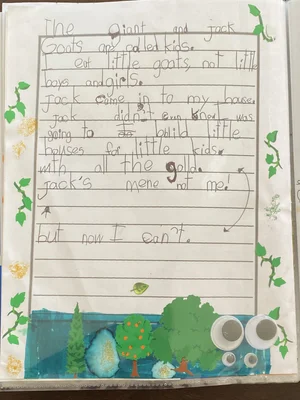 The giant and jack
Goats are called kids.
I eat little goats, not little
boys and girls.
jack came in to my house.
jack didn't even knew I was
going to build little
houses for little kids.
with all the gold.
jack's mene not me!
but now I can't.